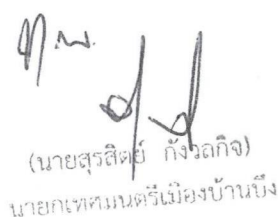 ท.พ.
(นายสุรสิตย์ กังวลกิจ)
นายกเทศมนตรีเมืองบ้านบึง